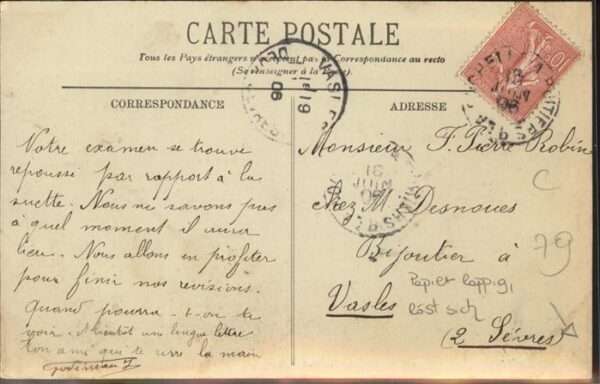 CARTE POSTALE
Tous les Pays étrangers n'acceptent pas la Correspondance au recto
(Se renseigner à la Poste).
CORRESPONDANCE
ADRESSE
Notre examen se trouve
repoussé par rapport à la
suette. Nous ne savons pas
à quel moment il aura
lieu. Nous allons en profiter
pour finir nos revisions.
Quand pourra-t-on te
voir. A bientôt une longue lettre
Ton ami qui te serre la main
Monsieur F. Pierre Robin
chez M. Desnoues
Bijoutier à
Vasles
(2 Sèvres)
C
79
Papier lappig,
löst sich
VASLES
13
JUIN
06